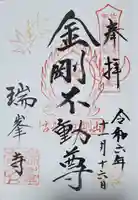 奉拝
令和六年
十月十六日
金剛不動尊
瑞峯寺